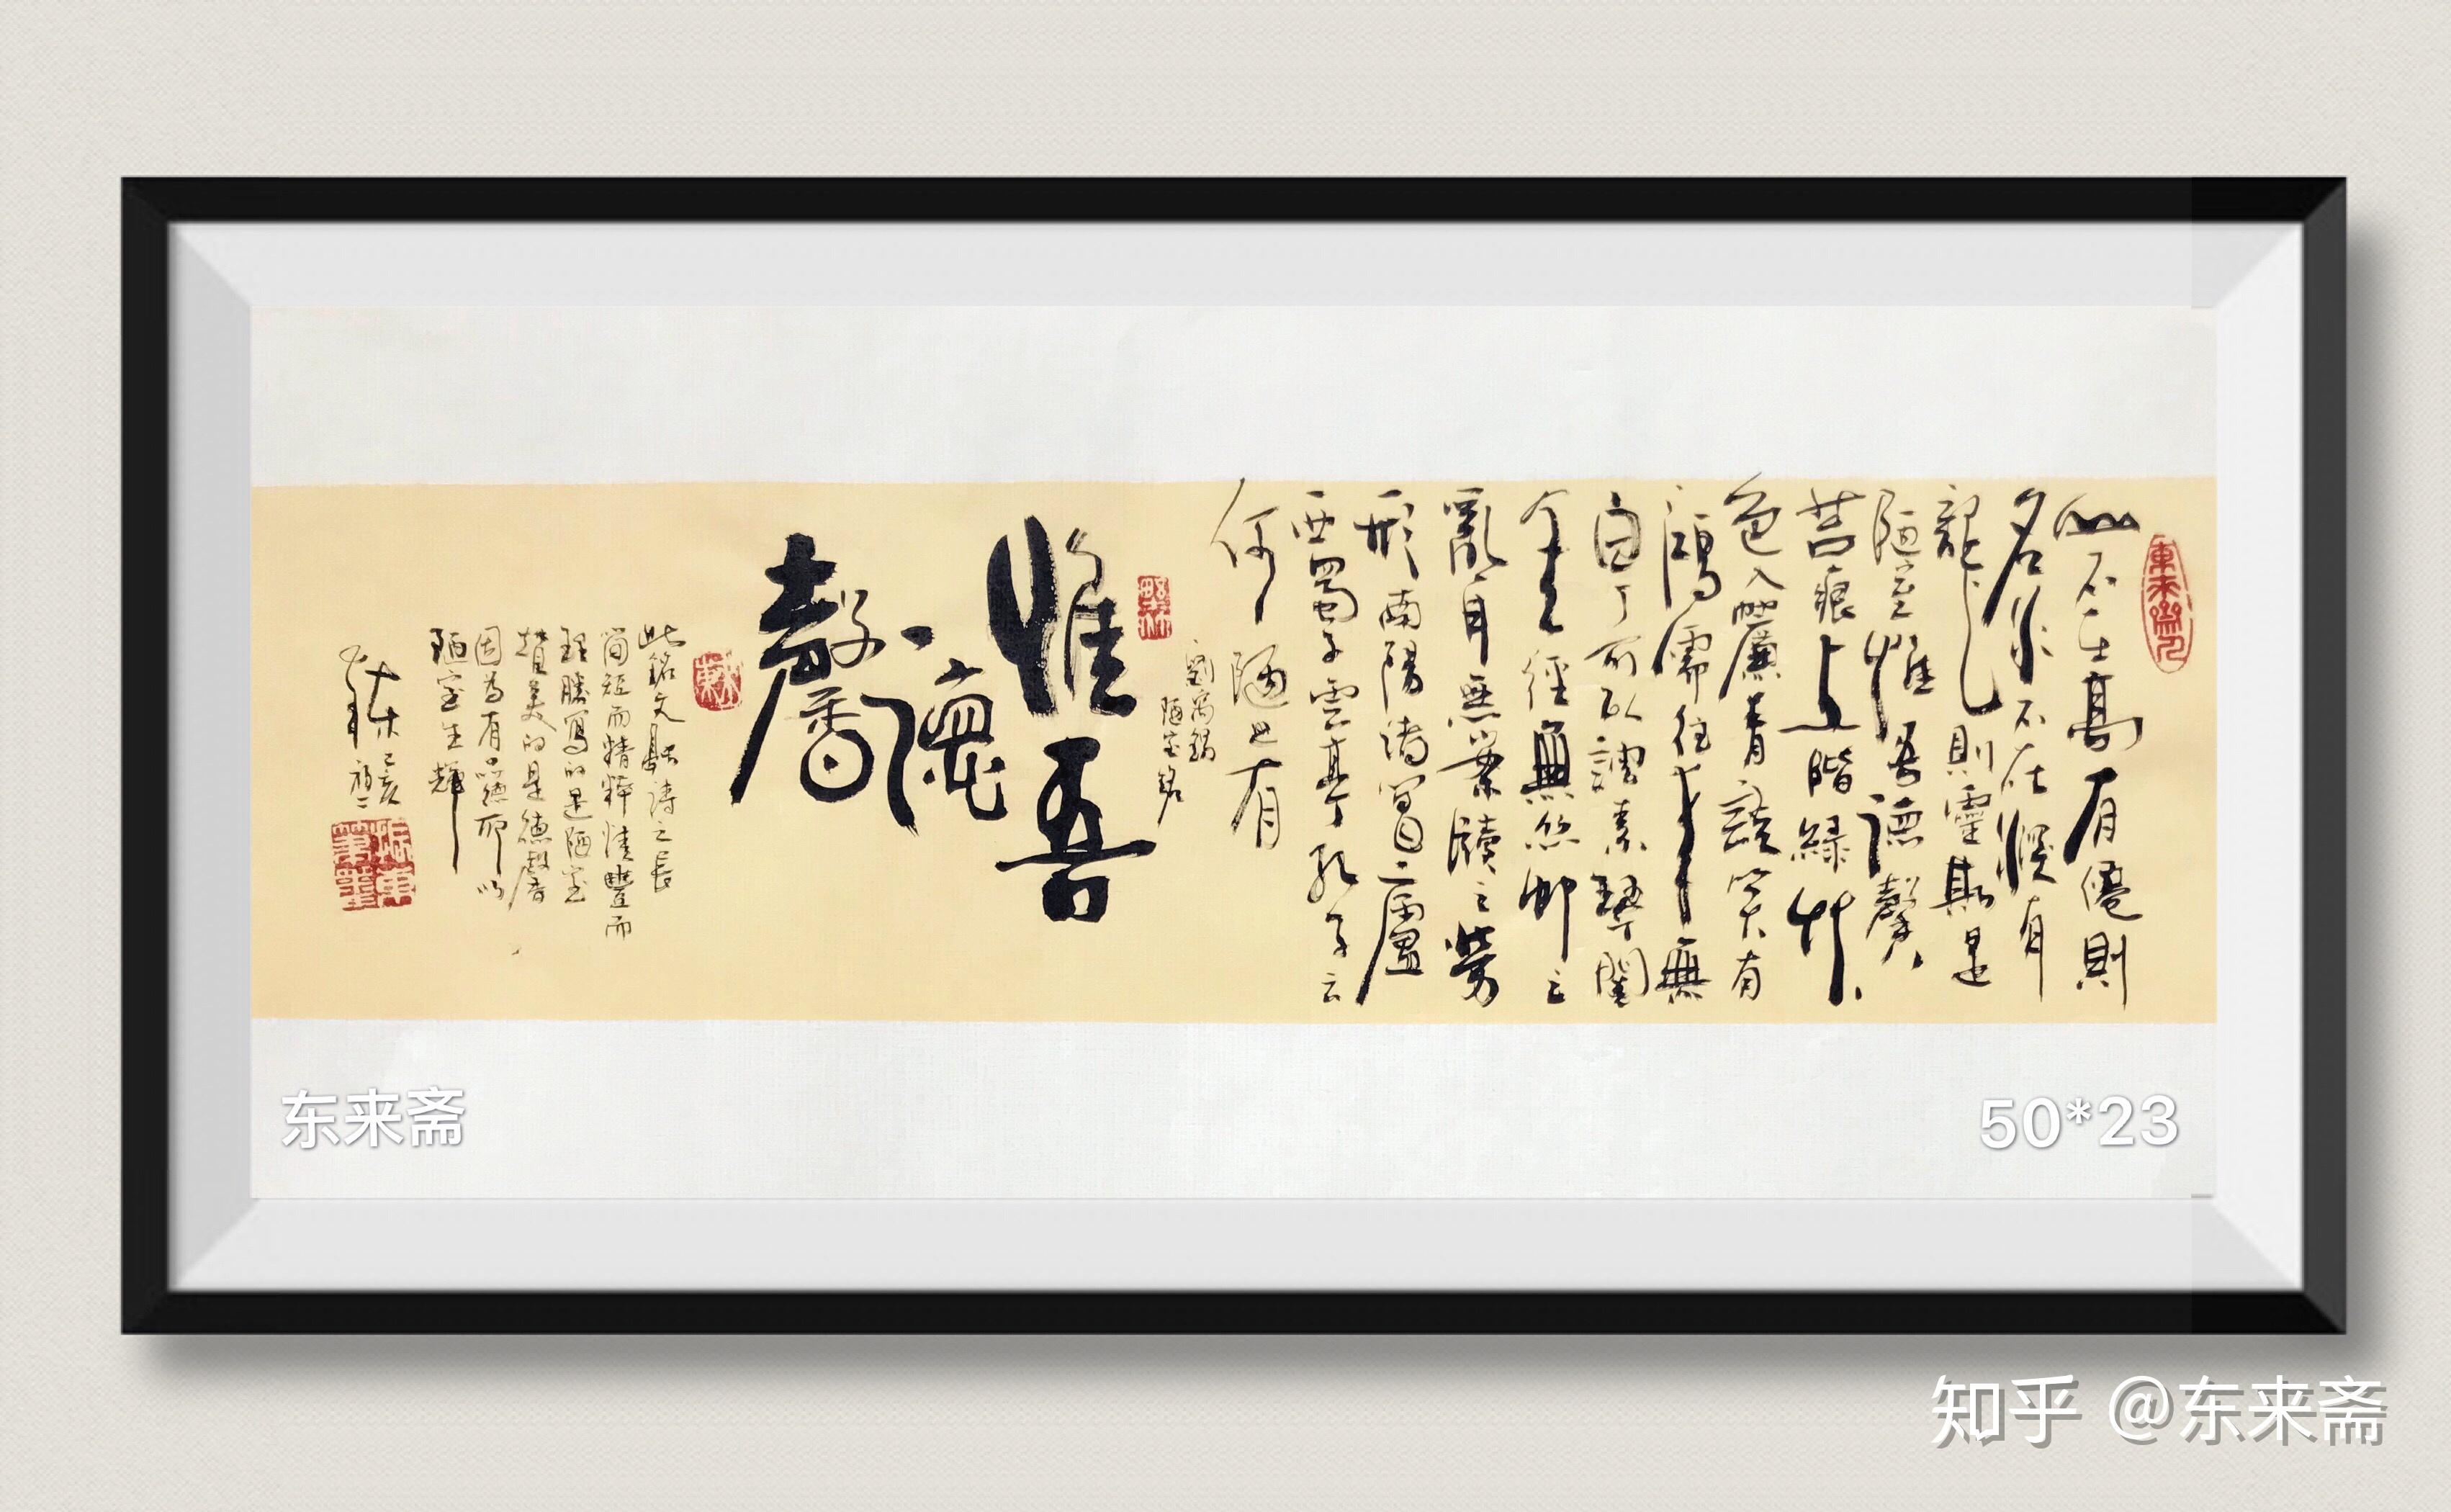 東来齋
山不在高有僊則
名水不在深有
龍則靈斯是
陋室惟吾德馨
苔痕上階緑艸
色入簾青談笑有
鴻儒往来無
白丁可以調素琴閲
金經無絲竹之
亂耳無案牘之勞
形南陽諸葛廬
西蜀子雲亭孔子云
何陋之有
劉禹錫
陋室銘
惟吾
德
馨
此銘文融詩之長
簡短而精粹情豐而
理勝寫的是陋室
贊美的是德馨
因為有德而
陋室生輝
己亥
东来斋
50*23
知乎 @东来斋